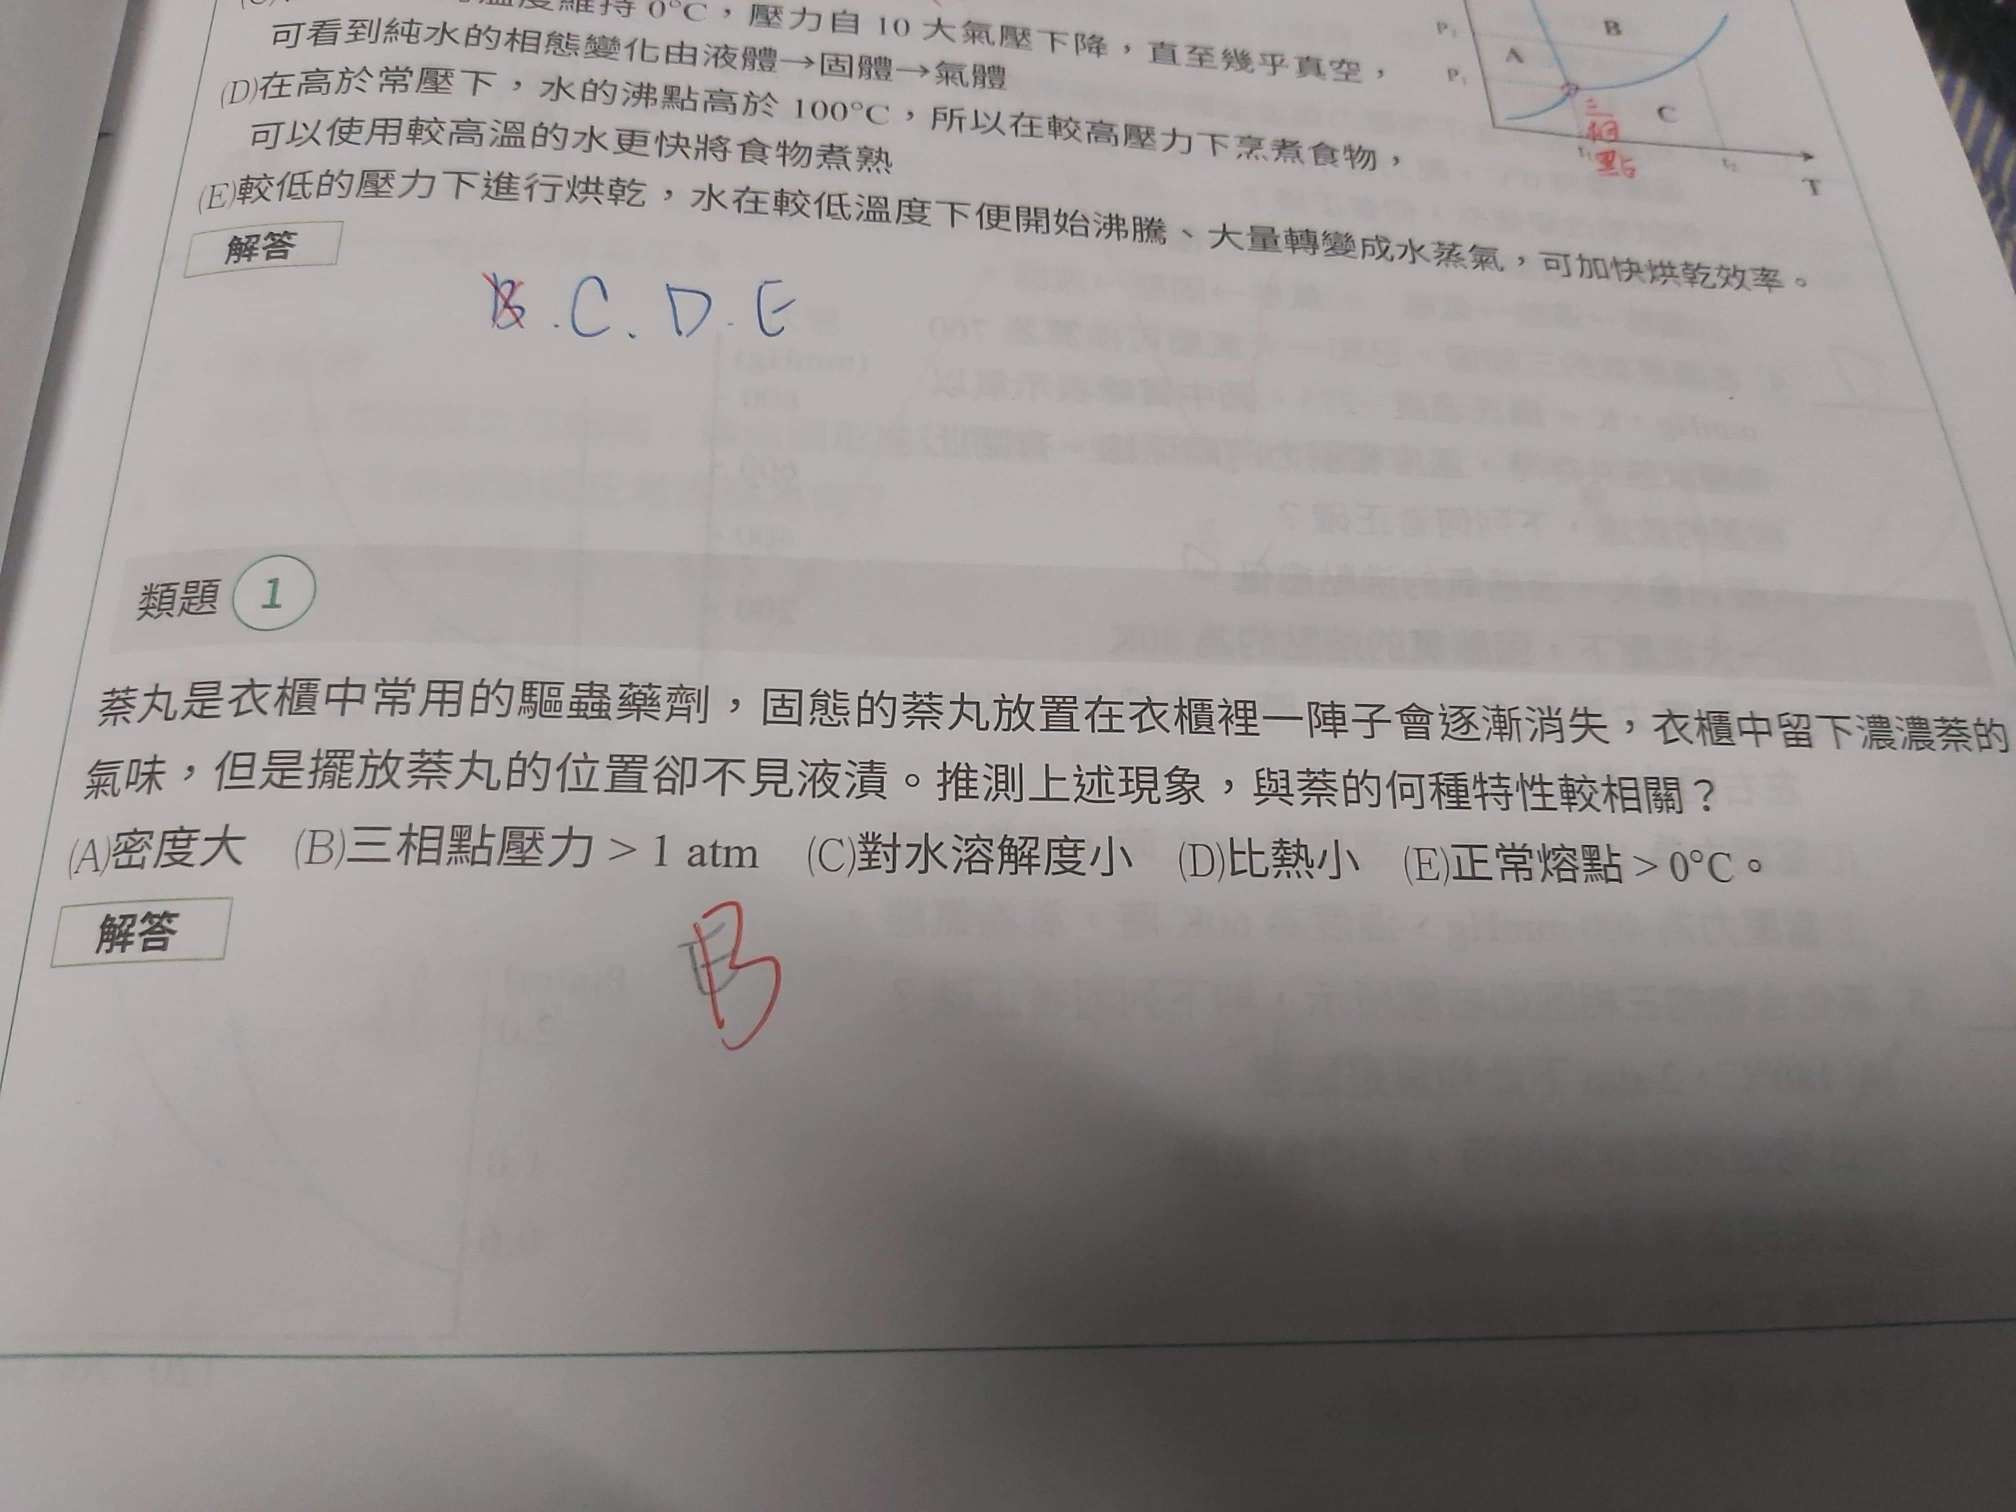 溫度維持 0°C，壓力自 10 大氣壓下降，直至幾乎真空，
可看到純水的相態變化由液體→固體→氣體
(D)在高於常壓下，水的沸點高於 100°C，所以在較高壓力下烹煮食物，
可以使用較高溫的水更快將食物煮熟
(E)較低的壓力下進行烘乾，水在較低溫度下便開始沸騰、大量轉變成水蒸氣，可加快烘乾效率。
A
B
C
P₁
三相點
t₁
t₂
T
解答
B.C.D.E
類題 1
萘丸是衣櫃中常用的驅蟲藥劑，固態的萘丸放置在衣櫃裡一陣子會逐漸消失，衣櫃中留下濃濃萘的
氣味，但是擺放萘丸的位置卻不見液漬。推測上述現象，與萘的何種特性較相關？
(A)密度大 (B)三相點壓力 > 1 atm (C)對水溶解度小 (D)比熱小 (E)正常熔點 > 0°C。
解答
B